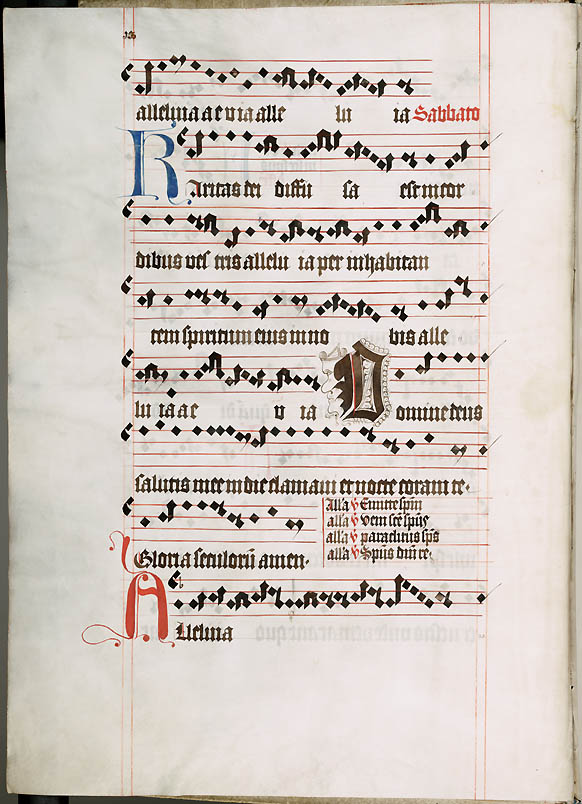 alleluia a e v ia alle lu ia Sabbato
Karitas dei diffu sa est in cor
dibus ves tris allelu ia per inhabitan
tem spiritum eius in no bis alle
lu ia a e v ia Domine deus
salutis mee in die clamavi et nocte coram te.
Alla v Emitte spm
alla v veni sce spus
alla v paraclitus sps
alla v Spus dni re.
Gloria seculorū amen.
Alleluia